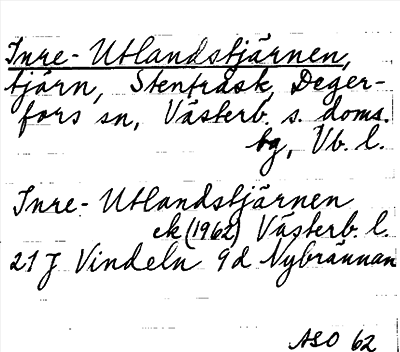 Inre-Utlandstjärnen,
tjärn, Stenträsk, Deger-
fors sn, Västerb. s. doms.
bg, Vb. l.
Inre-Utlandstjärnen
ek (1962) Västerb. l.
21 J Vindeln 9d Nybrännan
ASO 62